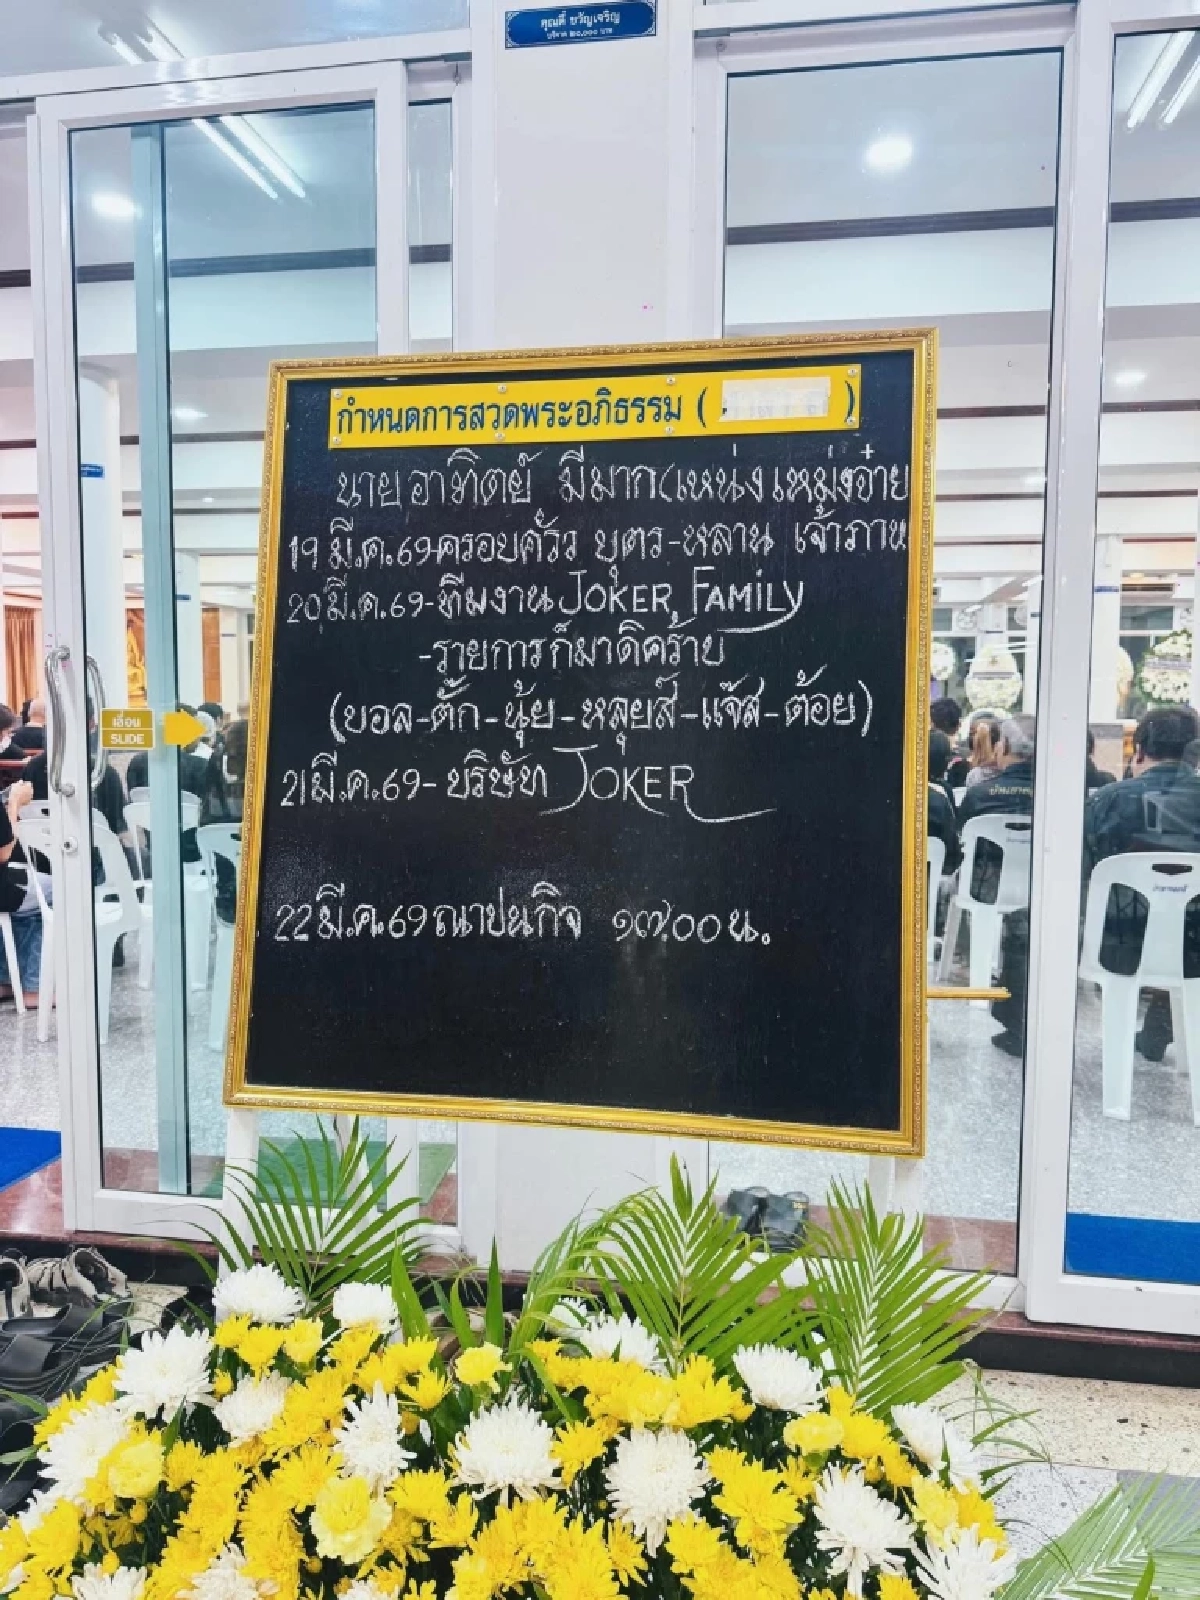 คุณตี๋ ขวัญเจริญ
บริจาค ๒๐,๐๐๐ บาท
กำหนดการสวดพระอภิธรรม ( )
นายอาทิตย์ มีมาก(เหน่งเหม่งจ๋าย
19 มี.ค.69-ครอบครัว บุตร-หลาน เจ้าภาพ
20 มี.ค.69-ทีมงาน JOKER FAMILY
-รายการก็มาดิคร้าบ
(บอล-ตั๊ก-นุ้ย-หลุยส์-แจ๊ส-ต้อย)
21 มี.ค.69- บริษัท JOKER
22 มี.ค.69 ฌาปนกิจ ๑๗.00 น.
เลื่อน
SLIDE